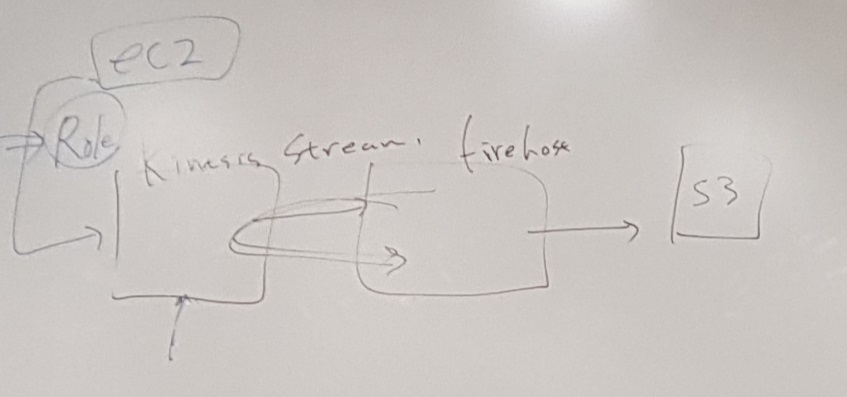 ec2
Role
Kinesis Stream. firehose
S3